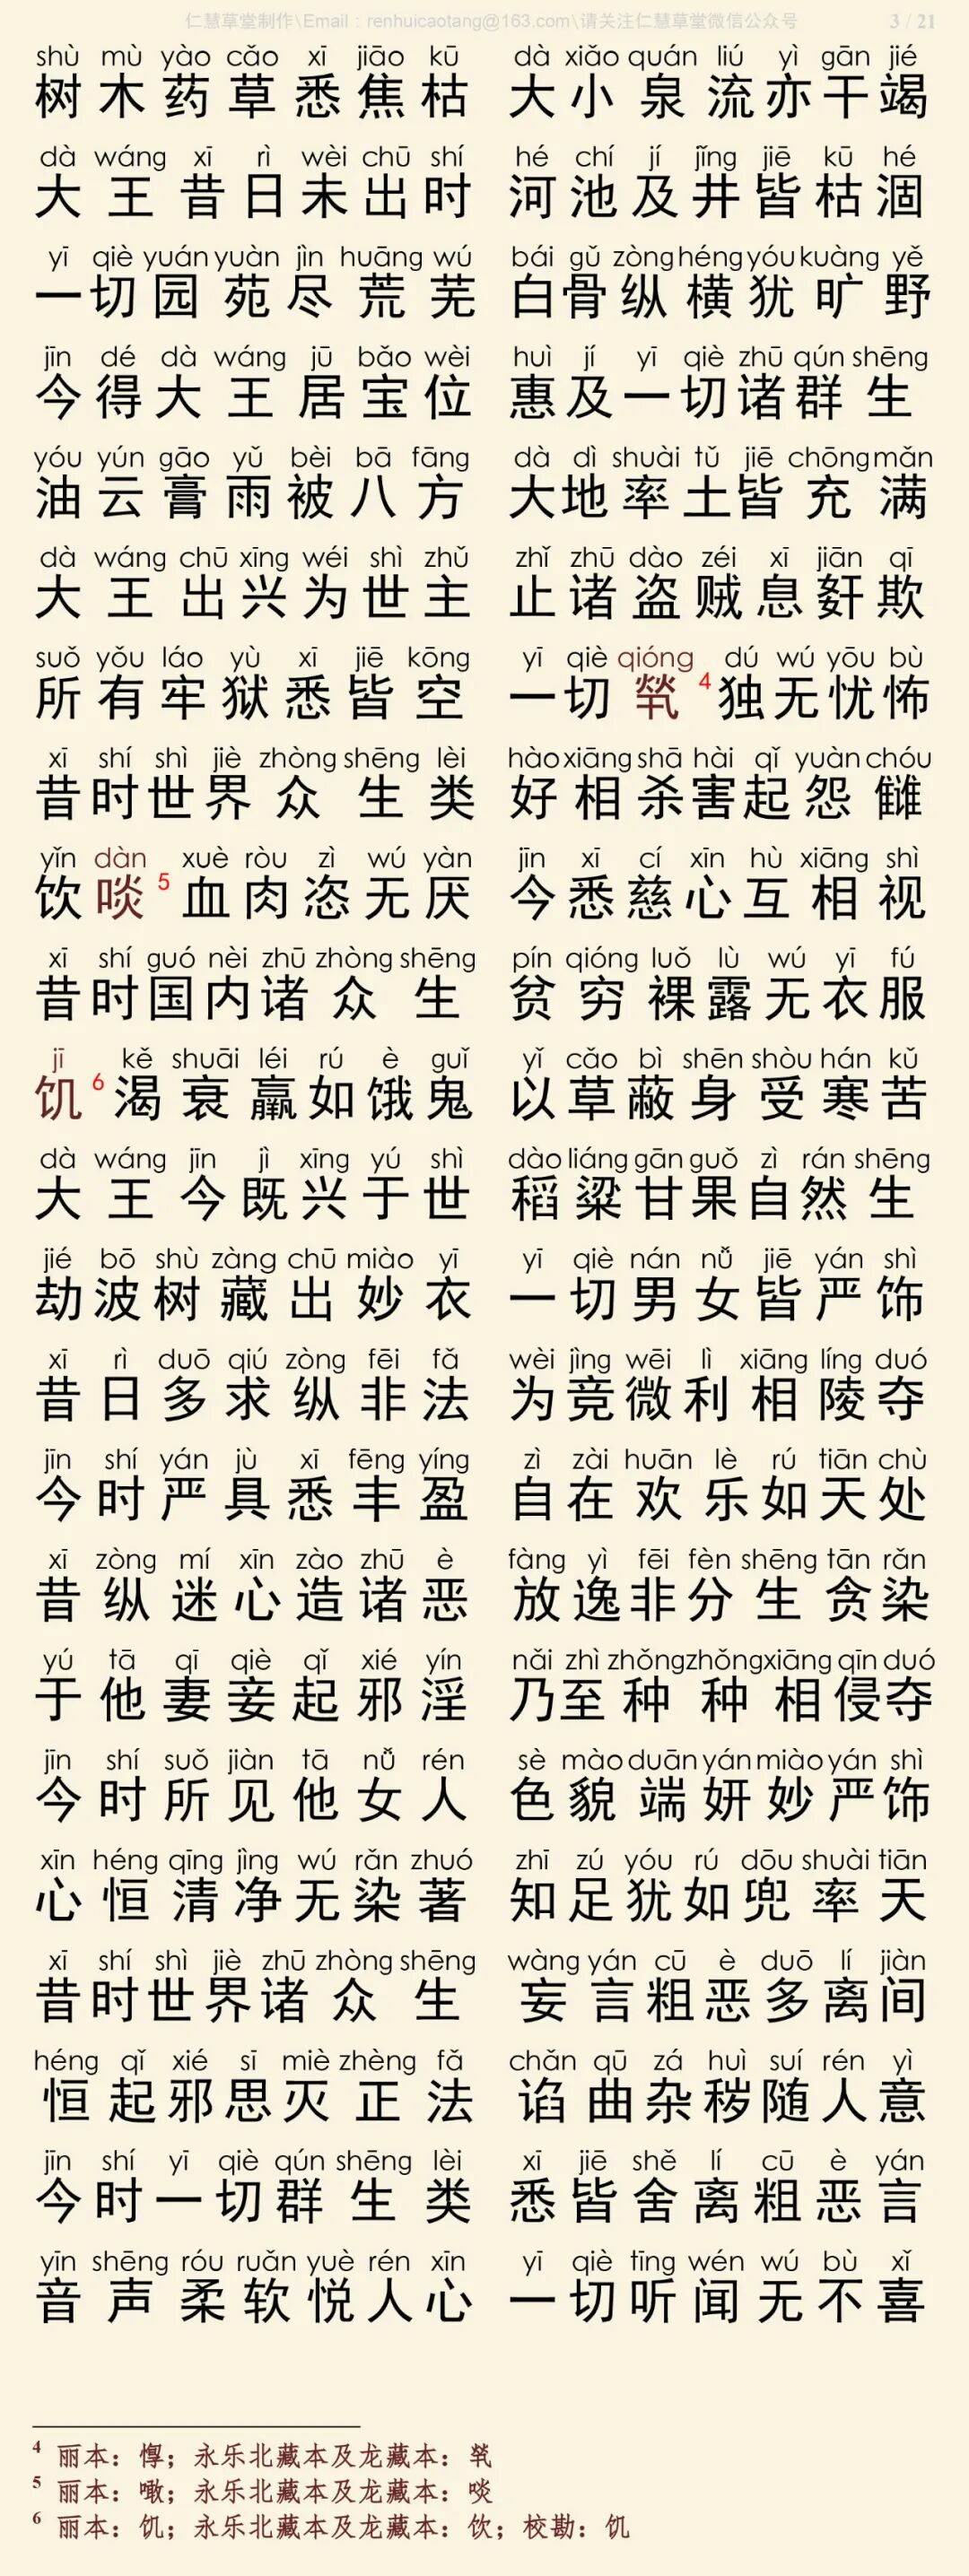 仁慧草堂制作\Email：renhuicaotang@163.com\请关注仁慧草堂微信公众号 3 / 21
shù mù yào cǎo xī jiāo kū dà xiǎo quán liú yì gān jié
树木药草悉焦枯 大小泉流亦干竭
dà wáng xī rì wèi chū shí hé chí jí jǐng jiē kū hé
大王昔日未出时 河池及井皆枯涸
yī qiè yuán yuàn jìn huāng wú bái gǔ zòng héng yóu kuàng yě
一切园苑尽荒芜 白骨纵横犹旷野
jīn dé dà wáng jū bǎo wèi huì jí yī qiè zhū qún shēng
今得大王居宝位 惠及一切诸群生
yóu yún gāo yǔ bèi bā fāng dà dì shuài tǔ jiē chōng mǎn
油云膏雨被八方 大地率土皆充满
dà wáng chū xīng wéi shì zhǔ zhǐ zhū dào zéi xī jiān qī
大王出兴为世主 止诸盗贼息奸欺
suǒ yǒu láo yù xī jiē kōng yī qiè qióng dú wú yōu bù
所有牢狱悉皆空 一切㷀4独无忧怖
xī shí shì jiè zhòng shēng lèi hào xiāng shā hài qǐ yuàn chóu
昔时世界众生类 好相杀害起怨雠
yǐn dàn xuè ròu zì wú yàn jīn xī cí xīn hù xiāng shì
饮啖5血肉恣无厌 今悉慈心互相视
xī shí guó nèi zhū zhòng shēng pín qióng luǒ lù wú yī fú
昔时国内诸众生 贫穷裸露无衣服
jī kě shuāi léi rú è guǐ yǐ cǎo bì shēn shòu hán kǔ
饥6渴衰羸如饿鬼 以草蔽身受寒苦
dà wáng jīn jì xīng yú shì dào liáng gān guǒ zì rán shēng
大王今既兴于世 稻粱甘果自然生
jié bō shù zàng chū miào yī yī qiè nán nǚ jiē yán shì
劫波树藏出妙衣 一切男女皆严饰
xī rì duō qiú zòng fēi fǎ wèi jìng wēi lì xiāng líng duó
昔日多求纵非法 为竞微利相陵夺
jīn shí yán jù xī fēng yíng zì zài huān lè rú tiān chù
今时严具悉丰盈 自在欢乐如天处
xī zòng mí xīn zào zhū è fàng yì fēi fèn shēng tān rǎn
昔纵迷心造诸恶 放逸非分生贪染
yú tā qī qiè qǐ xié yín nǎi zhì zhǒng zhǒng xiāng qīn duó
于他妻妾起邪淫 乃至种种相侵夺
jīn shí suǒ jiàn tā nǚ rén sè mào duān yán miào yán shì
今时所见他女人 色貌端妍妙严饰
xīn héng qīng jìng wú rǎn zhuó zhī zú yóu rú dōu shuài tiān
心恒清净无染著 知足犹如兜率天
xī shí shì jiè zhū zhòng shēng wàng yán cū è duō lí jiàn
昔时世界诸众生 妄言粗恶多离间
héng qǐ xié sī miè zhèng fǎ chǎn qū zá huì suí rén yì
恒起邪思灭正法 谄曲杂秽随人意
jīn shí yī qiè qún shēng lèi xī jiē shě lí cū è yán
今时一切群生类 悉皆舍离粗恶言
yīn shēng róu ruǎn yuè rén xīn yī qiè tīng wén wú bù xǐ
音声柔软悦人心 一切听闻无不喜
4 丽本：惸；永乐北藏本及龙藏本：㷀
5 丽本：噉；永乐北藏本及龙藏本：啖
6 丽本：饥；永乐北藏本及龙藏本：饮；校勘：饥